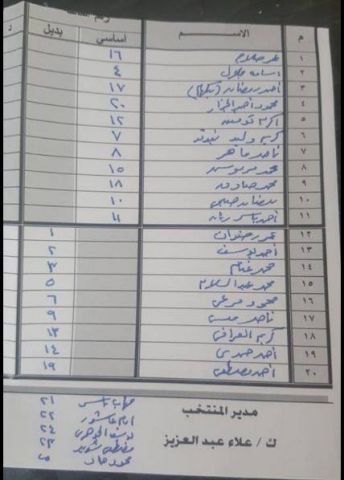 رقم الفانلة
م الاسم أساسي بديل
١ عمر صلاح ١٦
٢ أسامة جلال ٤
٣ أحمد رمضان (بيكهام) ١٧
٤ محمود أحمد الجزار ٢٠
٥ أكرم توفيق ١٢
٦ كريم وليد نيدفيد ٧
٧ ناصر ماهر ٨
٨ محمد ١٥
٩ محمد صادق ١٨
١٠ رمضان صبحي ١٠
١١ أحمد ياسر ريان ١١
١٢ عمر رضوان ١
١٣ أحمد يوسف ٢
١٤ محمد غنام ٣
١٥ محمد عبد السلام ٥
١٦ محمود مرعي ٦
١٧ ناصر منسي ٩
١٨ كريم العراقي ١٣
١٩ أحمد حمدي ١٤
٢٠ أحمد مصطفى ١٩
مهاب ياسر ٢١
مدير المنتخب
إمام عاشور ٢٢
يوسف الجوهري ٢٤
ك / علاء عبد العزيز
مصطفى شوبير ٢٣
محمود جاد ٢٥